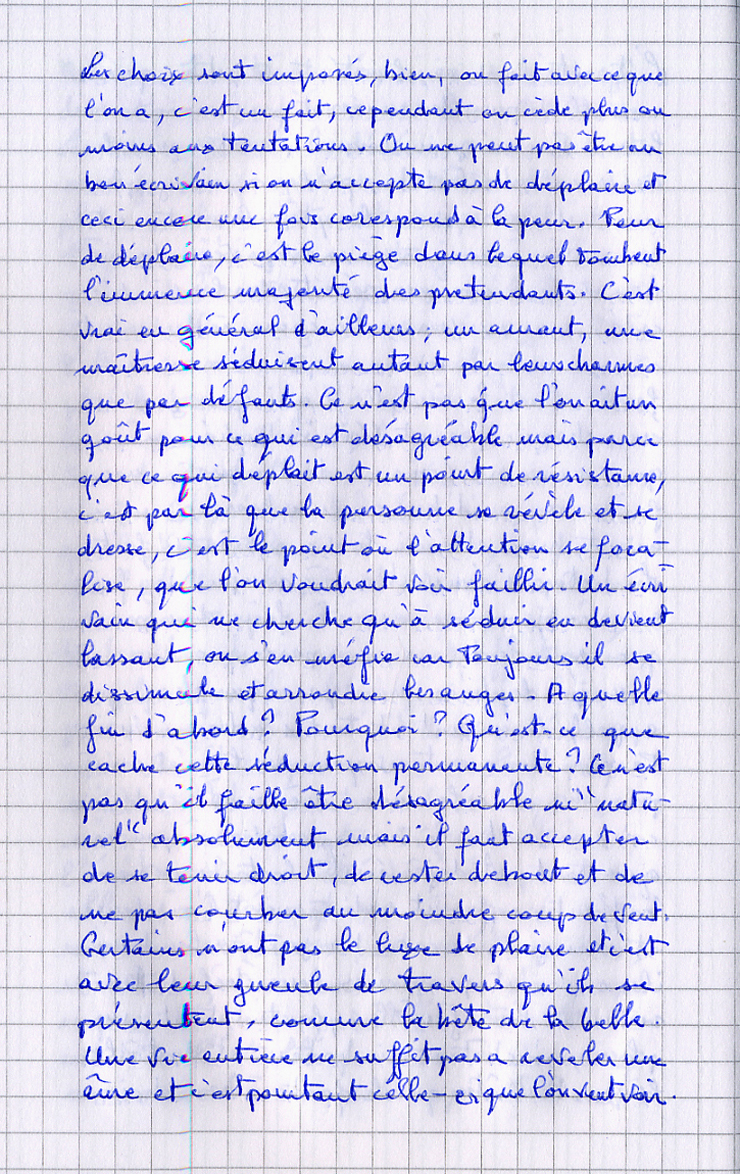 Les choix sont imposés, bien, on fait avec ce que
l'on a, c'est un fait, cependant on cède plus ou
moins aux tentations. On ne peut pas être un
bon écrivain si on n'accepte pas de déplaire et
ceci encore une fois corespond à la peur. Peur
de déplaire, c'est le piège dans lequel tombent
l'immence majorité des pretendants. C'est
vrai en général d'ailleurs ; un amant, une
maîtresse séduisent autant par leurs charmes
que par défauts. Ce n'est pas que l'on ait un
goût pour ce qui est désagréable mais parce
que ce qui déplait est un point de résistance,
c'est par là que la personne se révèle et se
dresse, c'est le point où l'attention se foca-
lise, que l'on voudrait voir faillir. Un écri
vain qui ne cherche qu'à séduir en devient
lassant, on s'en méfie car toujours il se
dissimule et arrondie les anges. A quelle
fin d'abord ? Pourquoi ? Qu'est-ce que
cache cette séduction permanente ? Ce n'est
pas qu'il faille être désagréable ni "natu-
rel" absolument mais il faut accepter
de se tenir droit, de rester debout et de
ne pas courber au moindre coup de vent.
Certains n'ont pas le luxe de plaire et c'est
avec leur gueule de travers qu'ils se
présentent, comme la bête de la belle.
Une vie entière ne suffit pas a reveler une
âme et c'est pourtant celle-ci que l'on veut voir.